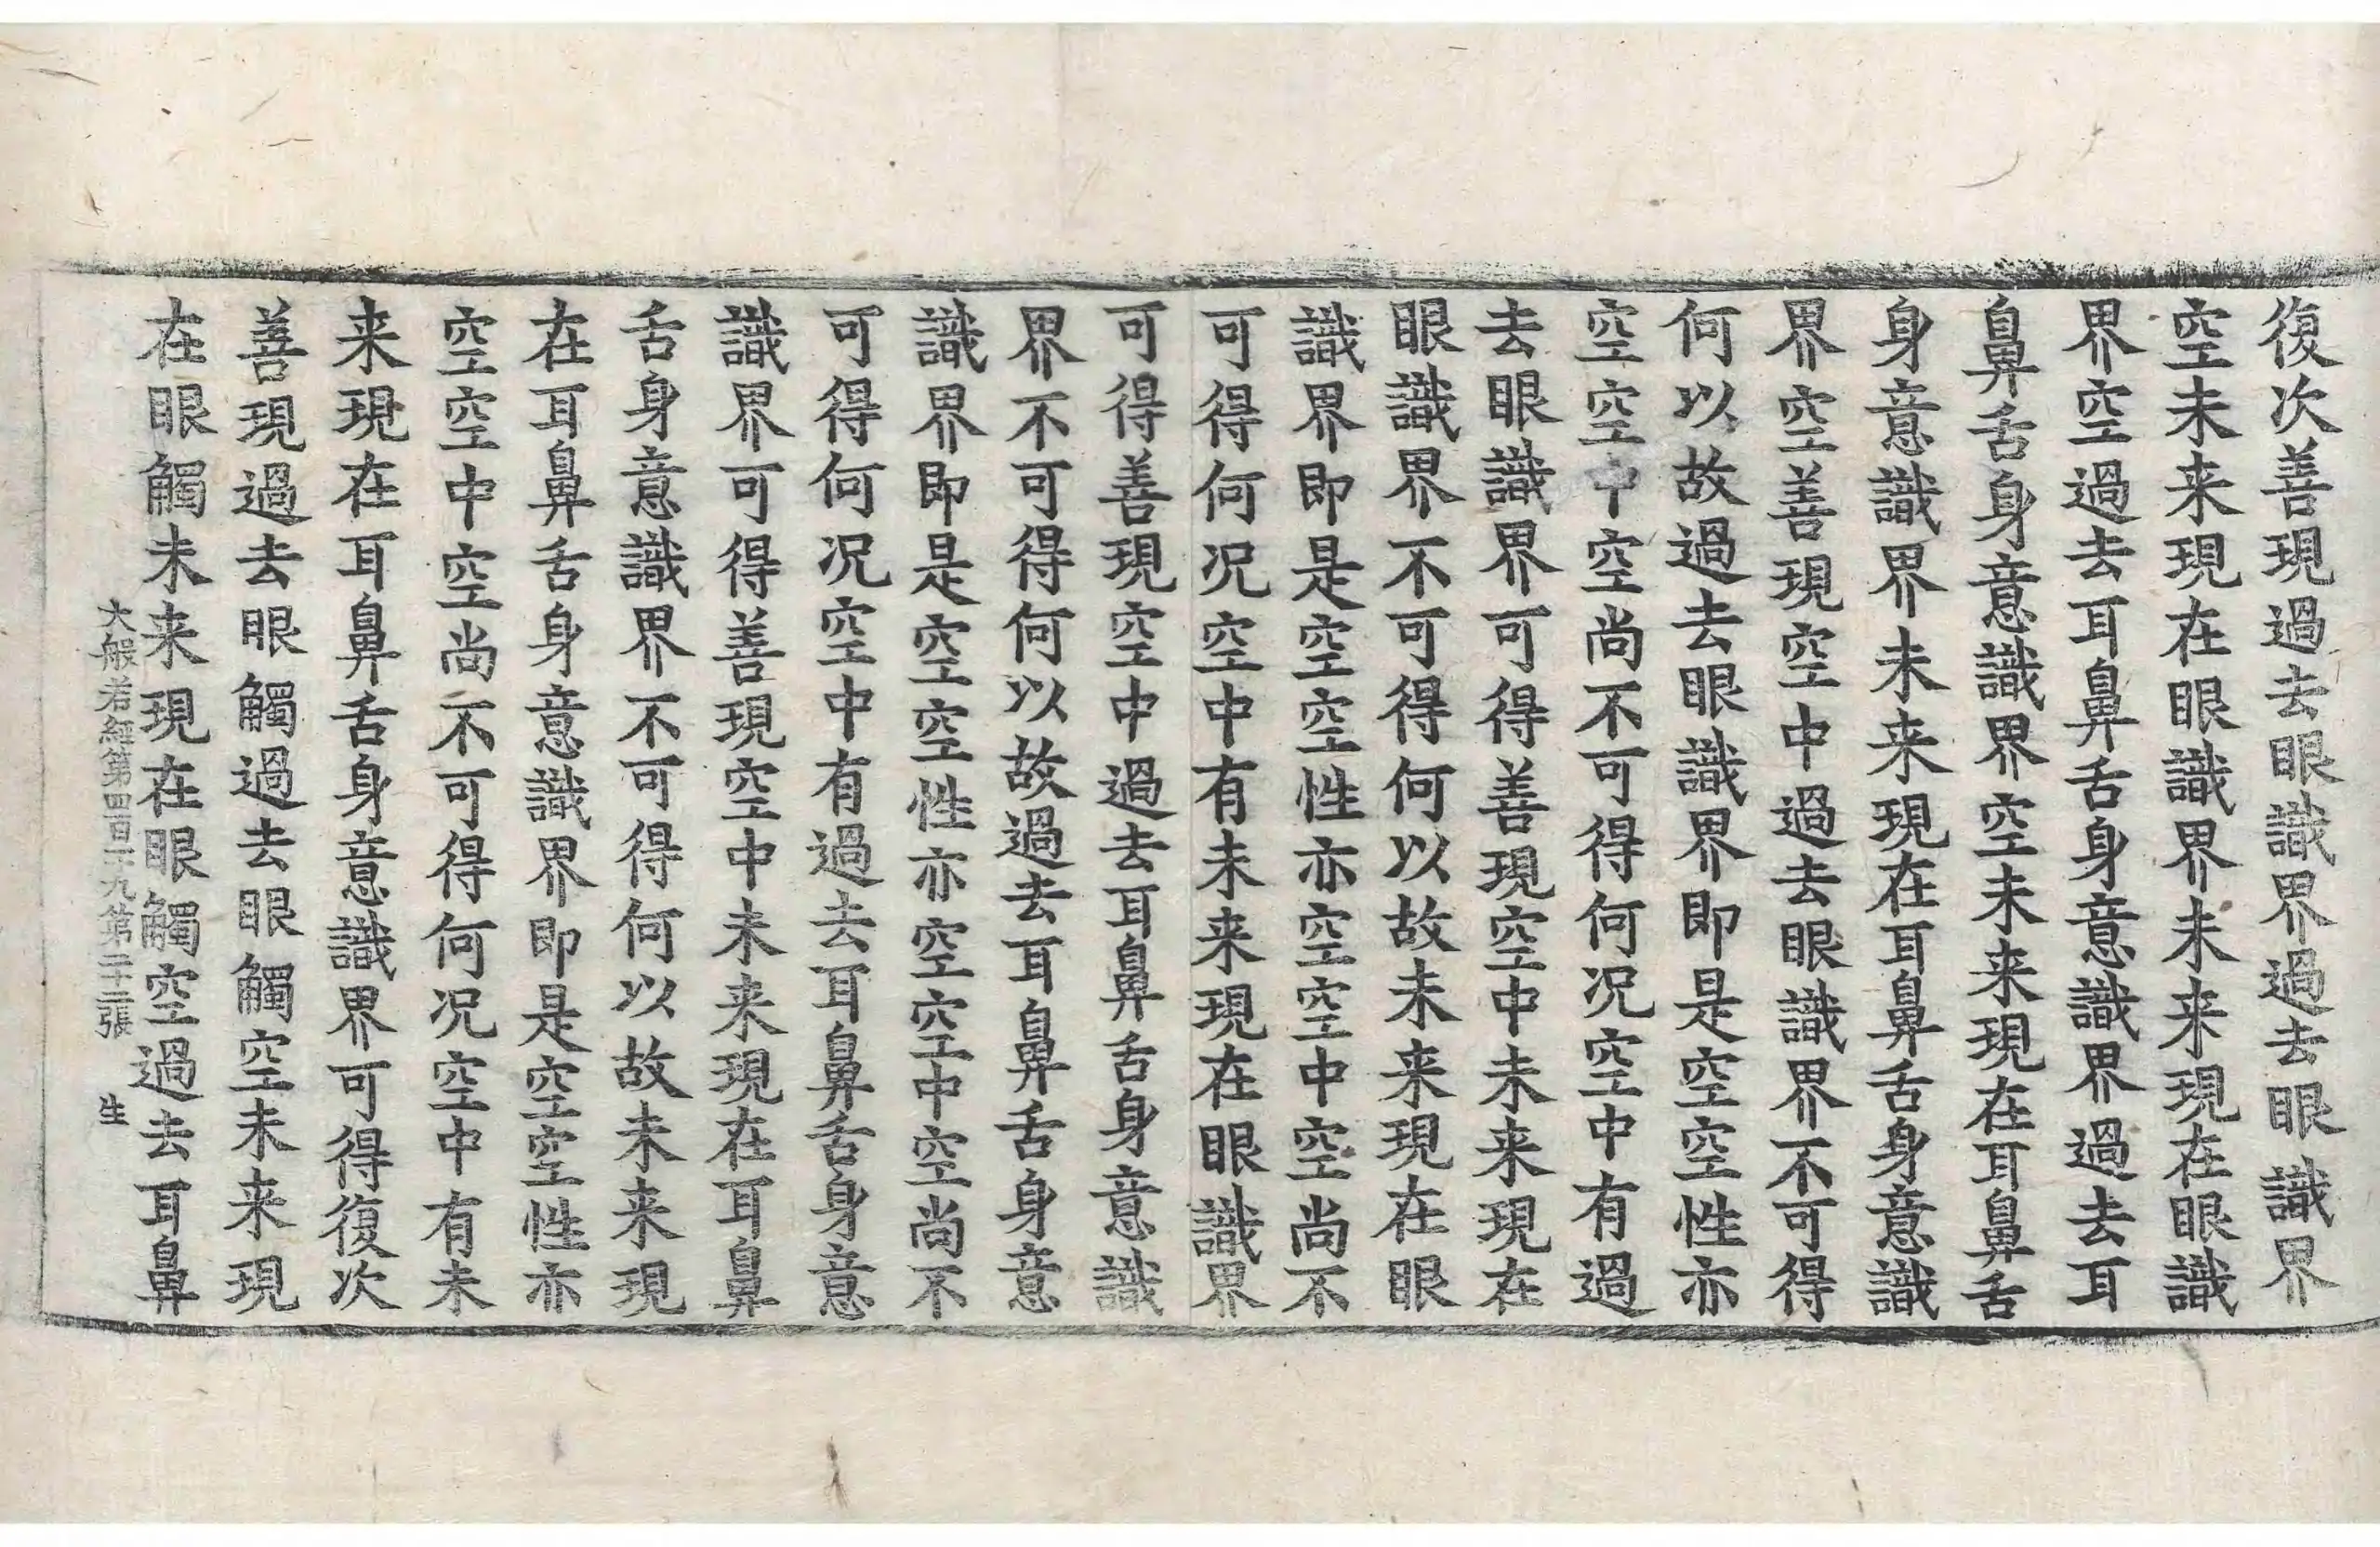 復次善現過去眼識界過去眼識界
空未来現在眼識界未来現在眼識
界空過去耳鼻舌身意識界過去耳
鼻舌身意識界空未来現在耳鼻舌
身意識界未来現在耳鼻舌身意識
界空善現空中過去眼識界不可得
何以故過去眼識界即是空空性亦
空空中空尚不可得何况空中有過
去眼識界可得善現空中未来現在
眼識界不可得何以故未来現在眼
識界即是空空性亦空空中空尚不
可得何况空中有未来現在眼識界
可得善現空中過去耳鼻舌身意識
界不可得何以故過去耳鼻舌身意
識界即是空空性亦空空中空尚不
可得何况空中有過去耳鼻舌身意
識界可得善現空中未来現在耳鼻
舌身意識界不可得何以故未来現
在耳鼻舌身意識界即是空空性亦
空空中空尚不可得何况空中有未
来現在耳鼻舌身意識界可得復次
善現過去眼觸過去眼觸空未来現
在眼觸未来現在眼觸空過去耳鼻
大般若經第四百十九第二十三張 生